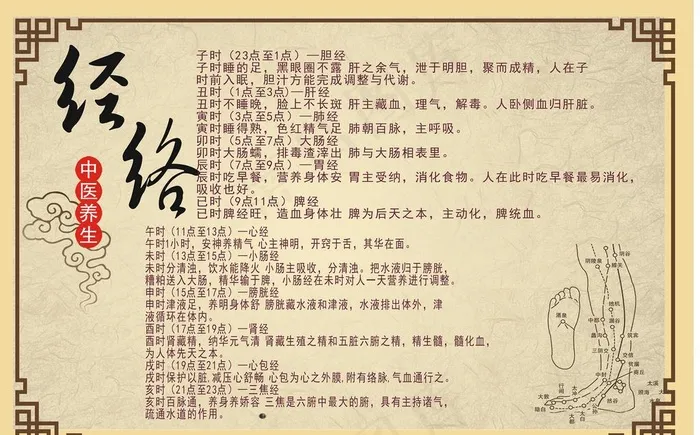 经络
中医养生
子时（23点至1点）—胆经
子时睡的足，黑眼圈不露 肝之余气，泄于明胆，聚而成精，人在子
时前入眠，胆汁方能完成调整与代谢。
丑时（1点至3点）—肝经
丑时不睡晚，脸上不长斑 肝主藏血，理气，解毒。人卧侧血归肝脏。
寅时（3点至5点）—肺经
寅时睡得熟，色红精气足 肺朝百脉，主呼吸。
卯时（5点至7点）大肠经
卯时大肠蠕，排毒渣滓出 肺与大肠相表里。
辰时（7点至9点）—胃经
辰时吃早餐，营养身体安 胃主受纳，消化食物。人在此时吃早餐最易消化，
吸收也好。
已时（9点11点）脾经
已时脾经旺，造血身体壮 脾为后天之本，主动化，脾统血。
午时（11点至13点）—心经
午时1小时，安神养精气 心主神明，开窍于舌，其华在面。
未时（13点至15点）—小肠经
未时分清浊，饮水能降火 小肠主吸收，分清浊。把水液归于膀胱，
糟粕送入大肠，精华输于脾，小肠经在未时对人一天营养进行调整。
申时（15点至17点）—膀胱经
申时津液足，养明身体舒 膀胱藏水液和津液，水液排出体外，津
液循环在体内。
酉时（17点至19点）—肾经
酉时肾藏精，纳华元气清 肾藏生殖之精和五脏六腑之精，精生髓，髓化血，
为人体先天之本。
戌时（19点至21点）—心包经
戌时保护以脏，减压心舒畅 心包为心之外膜，附有络脉，气血通行之。
亥时（21点至23点）—三焦经
亥时百脉通，养身养娇容 三焦是六腑中最大的腑，具有主持诸气，
疏通水道的作用。
涌泉
阴谷
阴陵泉
膝关
地机
中都
漏谷
蠡沟
筑宾
三阴交
交信
复溜
中封
太溪
照海
水泉
然谷
公孙
太白
太都
行间
太冲
大敦
隐白